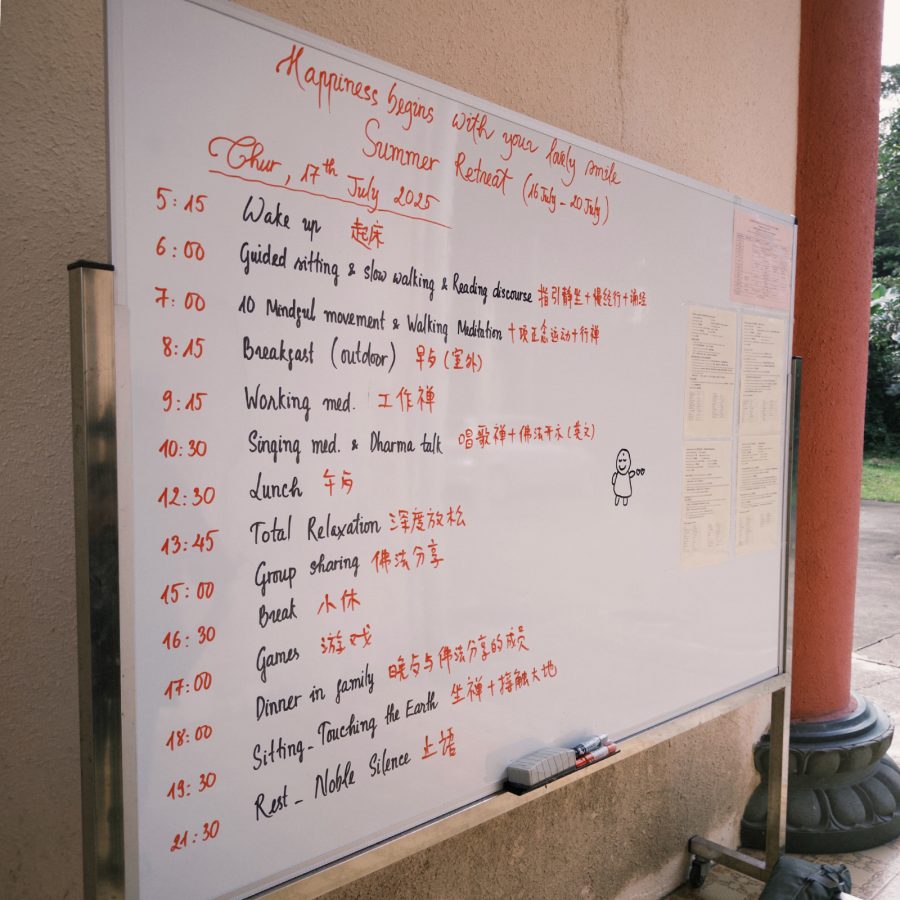 Happiness begins with your lovely smile
Summer Retreat (16 July - 20 July)
Thur, 17th July 2025
5:15 Wake up 起床
6:00 Guided sitting & slow walking & Reading discourse 指引静坐+慢经行+诵经
7:00 10 Mindful movement & Walking Meditation 十项正念运动+行禅
8:15 Breakfast (outdoor) 早歺 (室外)
9:15 Working med. 工作禅
10:30 Singing med. & Dharma talk 唱歌禅+佛法开示 (英文)
12:30 Lunch 午歺
13:45 Total Relaxation 深度放松
15:00 Group sharing 佛法分享
16:30 Break 小休
17:00 Games 游戏
18:00 Dinner in family 晚歺与佛法分享的成员
19:30 Sitting - Touching the Earth 坐禅+接触大地
21:30 Rest - Noble Silence 止语